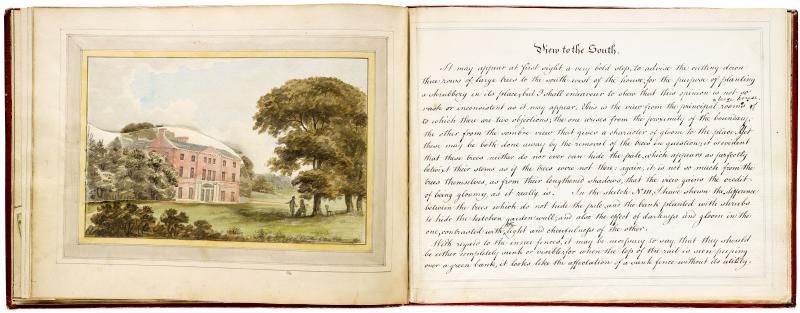 View to the South.
It may appear at first sight, a very bold step, to advise the cutting down
three rows of large trees to the south-west of the house, for the purpose of planting
a shrubbery in its place; but I shall endeavour to shew that this opinion is not so
rash or inconsistent as it may appear. This is the view from the principal rooms of a large house,
to which there are two objections; the one arises from the proximity of the boundary,
the other from the sombre view that gives a character of gloom to the place. Yet
these may be both done away by the removal of the trees in question; it is evident
that these trees neither do nor ever can hide the pale, which appears as perfectly
below their stems as if the trees were not there; again, it is not so much from the
trees themselves, as from their lengthened shadows, that the view gains the credit
of being gloomy, as it really is. In the sketch No. III, I have shewn the difference
between the trees which do not hide the pale, and the bank planted with shrubs
to hide the kitchen garden wall; and also the effect of darkness and gloom in the
one, contrasted with the light and chearfulness of the other.
With regard to the inner fences, it may be necessary to say, that they should
be either completely sunk or visible; for when the top of the rail is seen peeping
over a green bank, it looks like the affectation of a sunk fence without its utility.